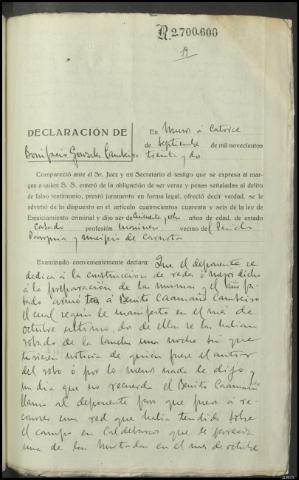 R 2.700.600
DECLARACIÓN DE
En Muros á Catorce
de Septiembre de mil novecientos
Bonifacio González treinta y dos
Compareció ante el Sr. Juez y mi Secretario el testigo que se expresa al mar-
gen a quien S. S. enteró de la obligación de ser veraz y penas señaladas al delito
de falso testimonio, prestó juramento en forma legal, ofreció decir verdad, se le
advirtió de lo dispuesto en el artículo cuatrocientos cuarenta y seis de la ley de
Enjuiciamiento criminal y dijo ser de años de edad, de estado
Casado profesión marinero vecino de
Parroquia y municipio de Carnota
Examinado convenientemente declara: Que el deponente se
dedica á la construccion de redes o mejor dicho
á la preparación de las mismas y el
á Benito Caamaño
el cual según le manifesto en el mes de
octubre ultimo de ella se la habian
robado de la lancha una noche sin que
tuviesen noticia de quien fuese el autor
del robo ó por lo menos nada le dijo y
un dia que no recuerda el Benito Caamaño
llamo al deponente para que fuese á re-
conocer una red que habia tendido sobre
el campo en Caldebarcos que le parecia
una de las hurtadas en el mes de octubre